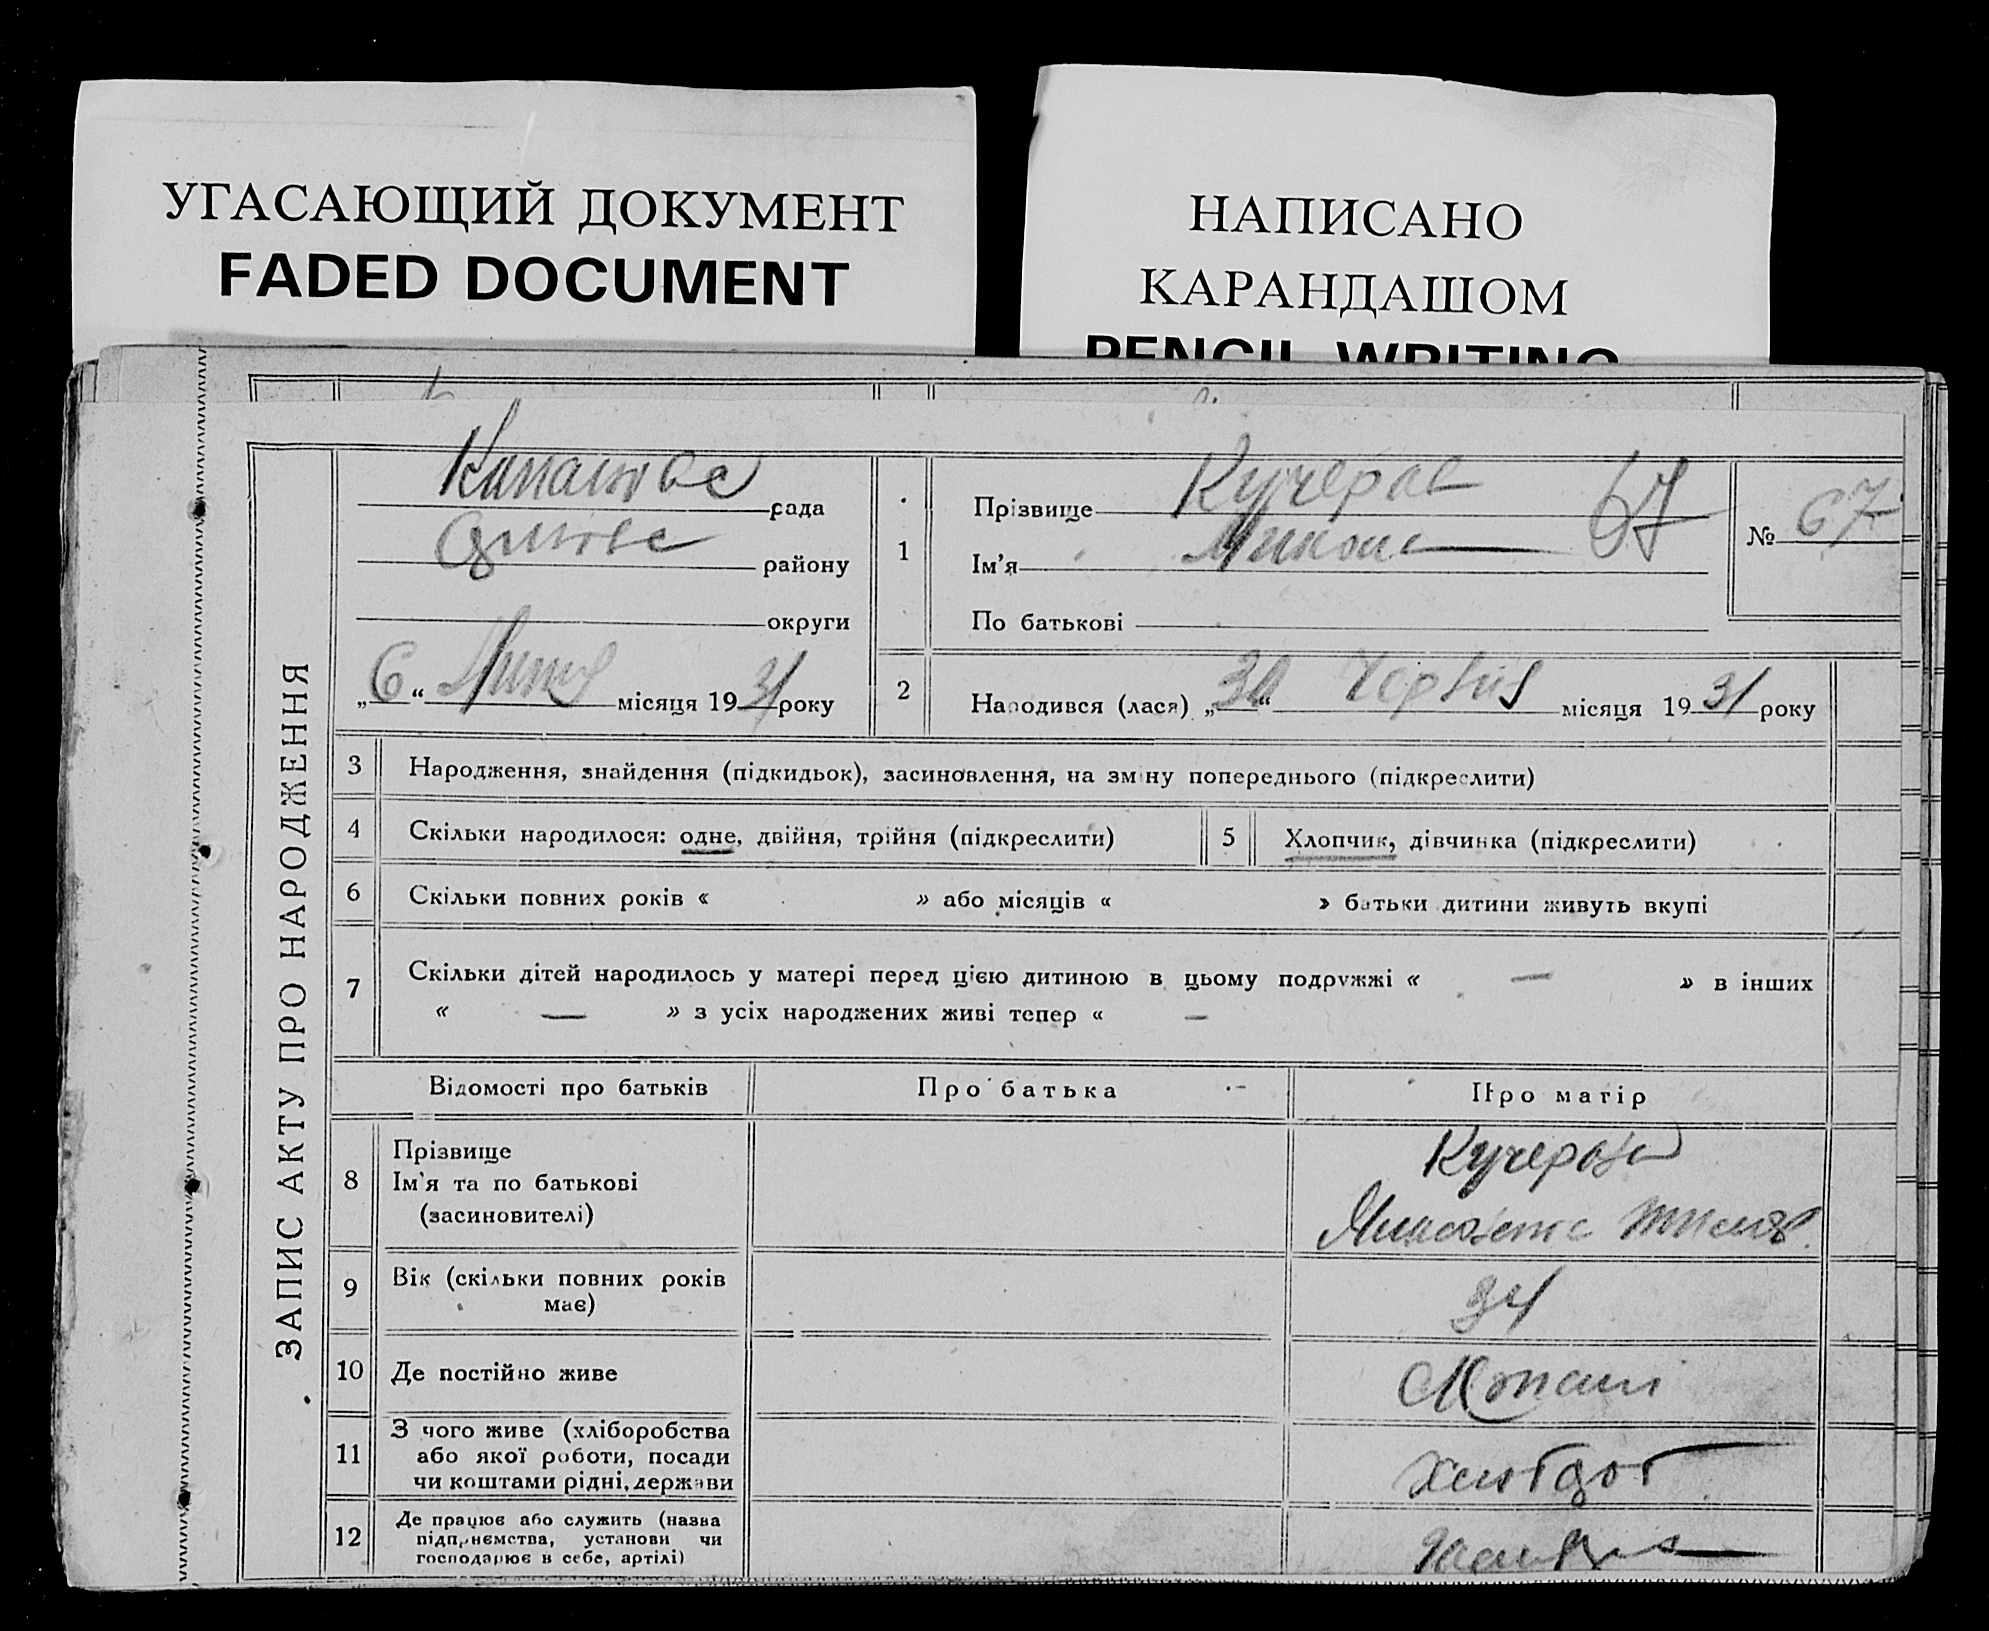 УГАСАЮЩИЙ ДОКУМЕНТ
FADED DOCUMENT
НАПИСАНО
КАРАНДАШОМ
PENCIL WRITING
ЗАПИС АКТУ ПРО НАРОДЖЕННЯ
рада
району
округи
„6“ Липня місяця 1931 року
1
Прізвище Кучерав
Ім'я Микола
67
По батькові
№ 67
2
Народився (лася) „30“ Червня місяця 1931 року
3 Народження, знайдення (підкидьок), засиновлення, на зміну попереднього (підкреслити)
4 Скільки народилося: одне, двійня, трійня (підкреслити)
5 Хлопчик, дівчинка (підкреслити)
6 Скільки повних років « » або місяців « » батьки дитини живуть вкупі
7 Скільки дітей народилось у матері перед цією дитиною в цьому подружжі « — » в інших
« — » з усіх народжених живі тепер « —
Відомості про батьків
Про батька
Про матір
8 Прізвище
Ім'я та по батькові
(засиновителі)
Кучерова
9 Вік (скільки повних років
має)
34
10 Де постійно живе
11 З чого живе (хліборобства
або якої роботи, посади
чи коштами рідні, держави
Хлібороб
12 Де працює або служить (назва
підприємства, установи чи
господарює в себе, артілі)